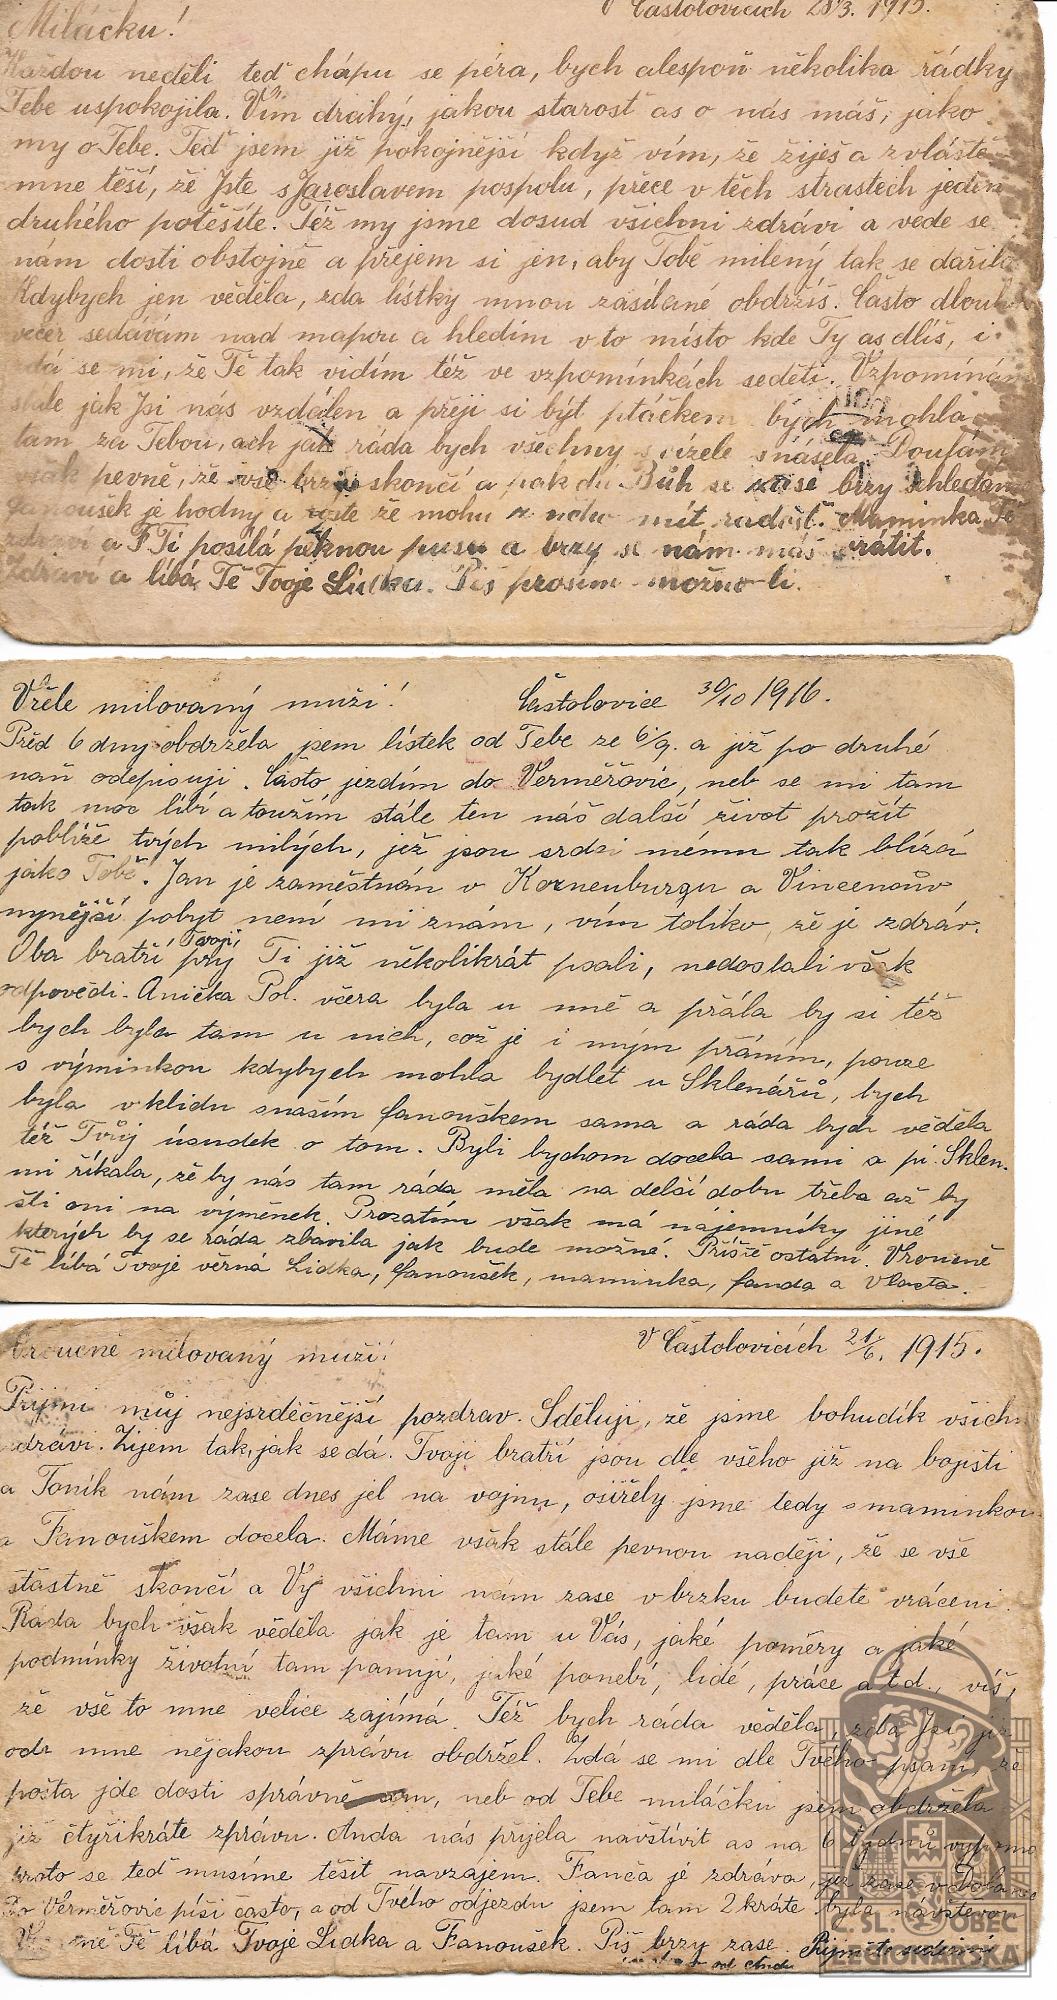 V Častolovicích 28/3. 1915.
Miláčku!
Každou neděli teď chápu se péra, bych alespoň několika řádky
Tebe uspokojila. Vím drahý, jakou starosť as o nás máš, jako
my o Tebe. Teď jsem již pokojnější když vím, že žiješ a zvláště
mne těší, že Jste s Jaroslavem pospolu, přece v těch strastech jeden
druhého potěšíte. Též my jsme dosud všichni zdrávi a vede se
nám dosti obstojně a přejem si jen, aby Tobě milený tak se dařilo
Kdybych jen věděla, zda lístky mnou zasílané obdržíš. Často dlouho
večer sedávám nad mapou a hledím v to místo kde Ty as dlíš, i
zdá se mi, že Tě tak vidím též ve vzpomínkách seděti. Vzpomínám
stále jak Jsi nás vzdálen a přeji si být ptáčkem bych mohla
tam za Tebou, ach jak ráda bych všechny svízele snášela. Doufám
však pevně, že vše brzy skončí a pak dá Bůh se zase brzy shledám
Fanoušek je hodný a roste že mohu z něho mít radosť. Maminka Tě
zdraví a F Ti posílá pěknou pusu a brzy se nám máš vrátit.
Zdraví a líbá Tě Tvoje Lidka. Piš prosím možno-li.
Vřele milovaný muži! Častolovice 30/10 1916.
Před 6 dny obdržela jsem lístek od Tebe ze 6/9. a již po druhé
naň odepisuji. Často jezdím do Verměřovic, neb se mi tam
tak moc líbí a toužím stále ten náš další život prožít
poblíže tvých milých, již jsou srdci mému tak blízcí
jako Tobě. Jan je zaměstnán v Korneuburgu a Vincencův
nynější pobyt není mi znám, vím toliko, že je zdráv.
Oba bratří Tvoji prý Ti již několikrát psali, nedostali však
odpovědi. Anička Pol. včera byla u mně a přála by si též
bych byla tam u nich, což je i mým přáním, pouze
s výminkou kdybych mohla bydlet u Sklenářů, bych
byla v klidu s naším fanouškem sama a ráda bych věděla
též Tvůj úsudek o tom. Byli bychom docela sami a pí. Sklen.
mi říkala, že by nás tam ráda měla na delší dobu třeba až by
šli oni na výměnek. Prozatím však má nájemníky jiné
kterých by se ráda zbavila jak bude možné. Příště ostatní. Vroucně
Tě líbá Tvoje věrná Lidka, fanoušek, maminka, fanda a Vlasta.
Vroucně milovaný muži! V Častolovicích 21/6. 1915.
Přijmi můj nejsrdečnější pozdrav. Sděluji, že jsme bohudík všichni
zdrávi. Žijem tak, jak se dá. Tvoji bratří jsou dle všeho již na bojišti
a Toník nám zase dnes jel na vojnu, osiřely jsme tedy s maminkou
a Fanouškem docela. Máme však stále pevnou naději, že se vše
štastně skončí a Vy všichni nám zase v brzku budete vráceni.
Ráda bych však věděla jak je tam u Vás, jaké poměry a jaké
podmínky životní tam panují, jaké ponebí, lidé, práce a t d., víš,
že vše to mne velice zajímá. Též bych ráda věděla, zda Jsi již
ode mne nějakou zprávu obdržel. Zdá se mi dle Tvého psaní, že
pošta jde dosti správně, neb od Tebe miláčku jsem obdržela
již čtyřikráte zprávu. Anda nás přijela navštívit as na 6 týdnů
proto se teď musíme těšit navzájem. Fanča je zdráva, již zase v
Do Verměřovic píši často, a od Tvého odjezdu jsem tam 2 kráte byla návštěvou
Tě líbá Tvoje Lidka a Fanoušek. Piš brzy zase. Přijměte srdečný
od Andi
Č. SL. OBEC
LEGIONÁŘSKÁ